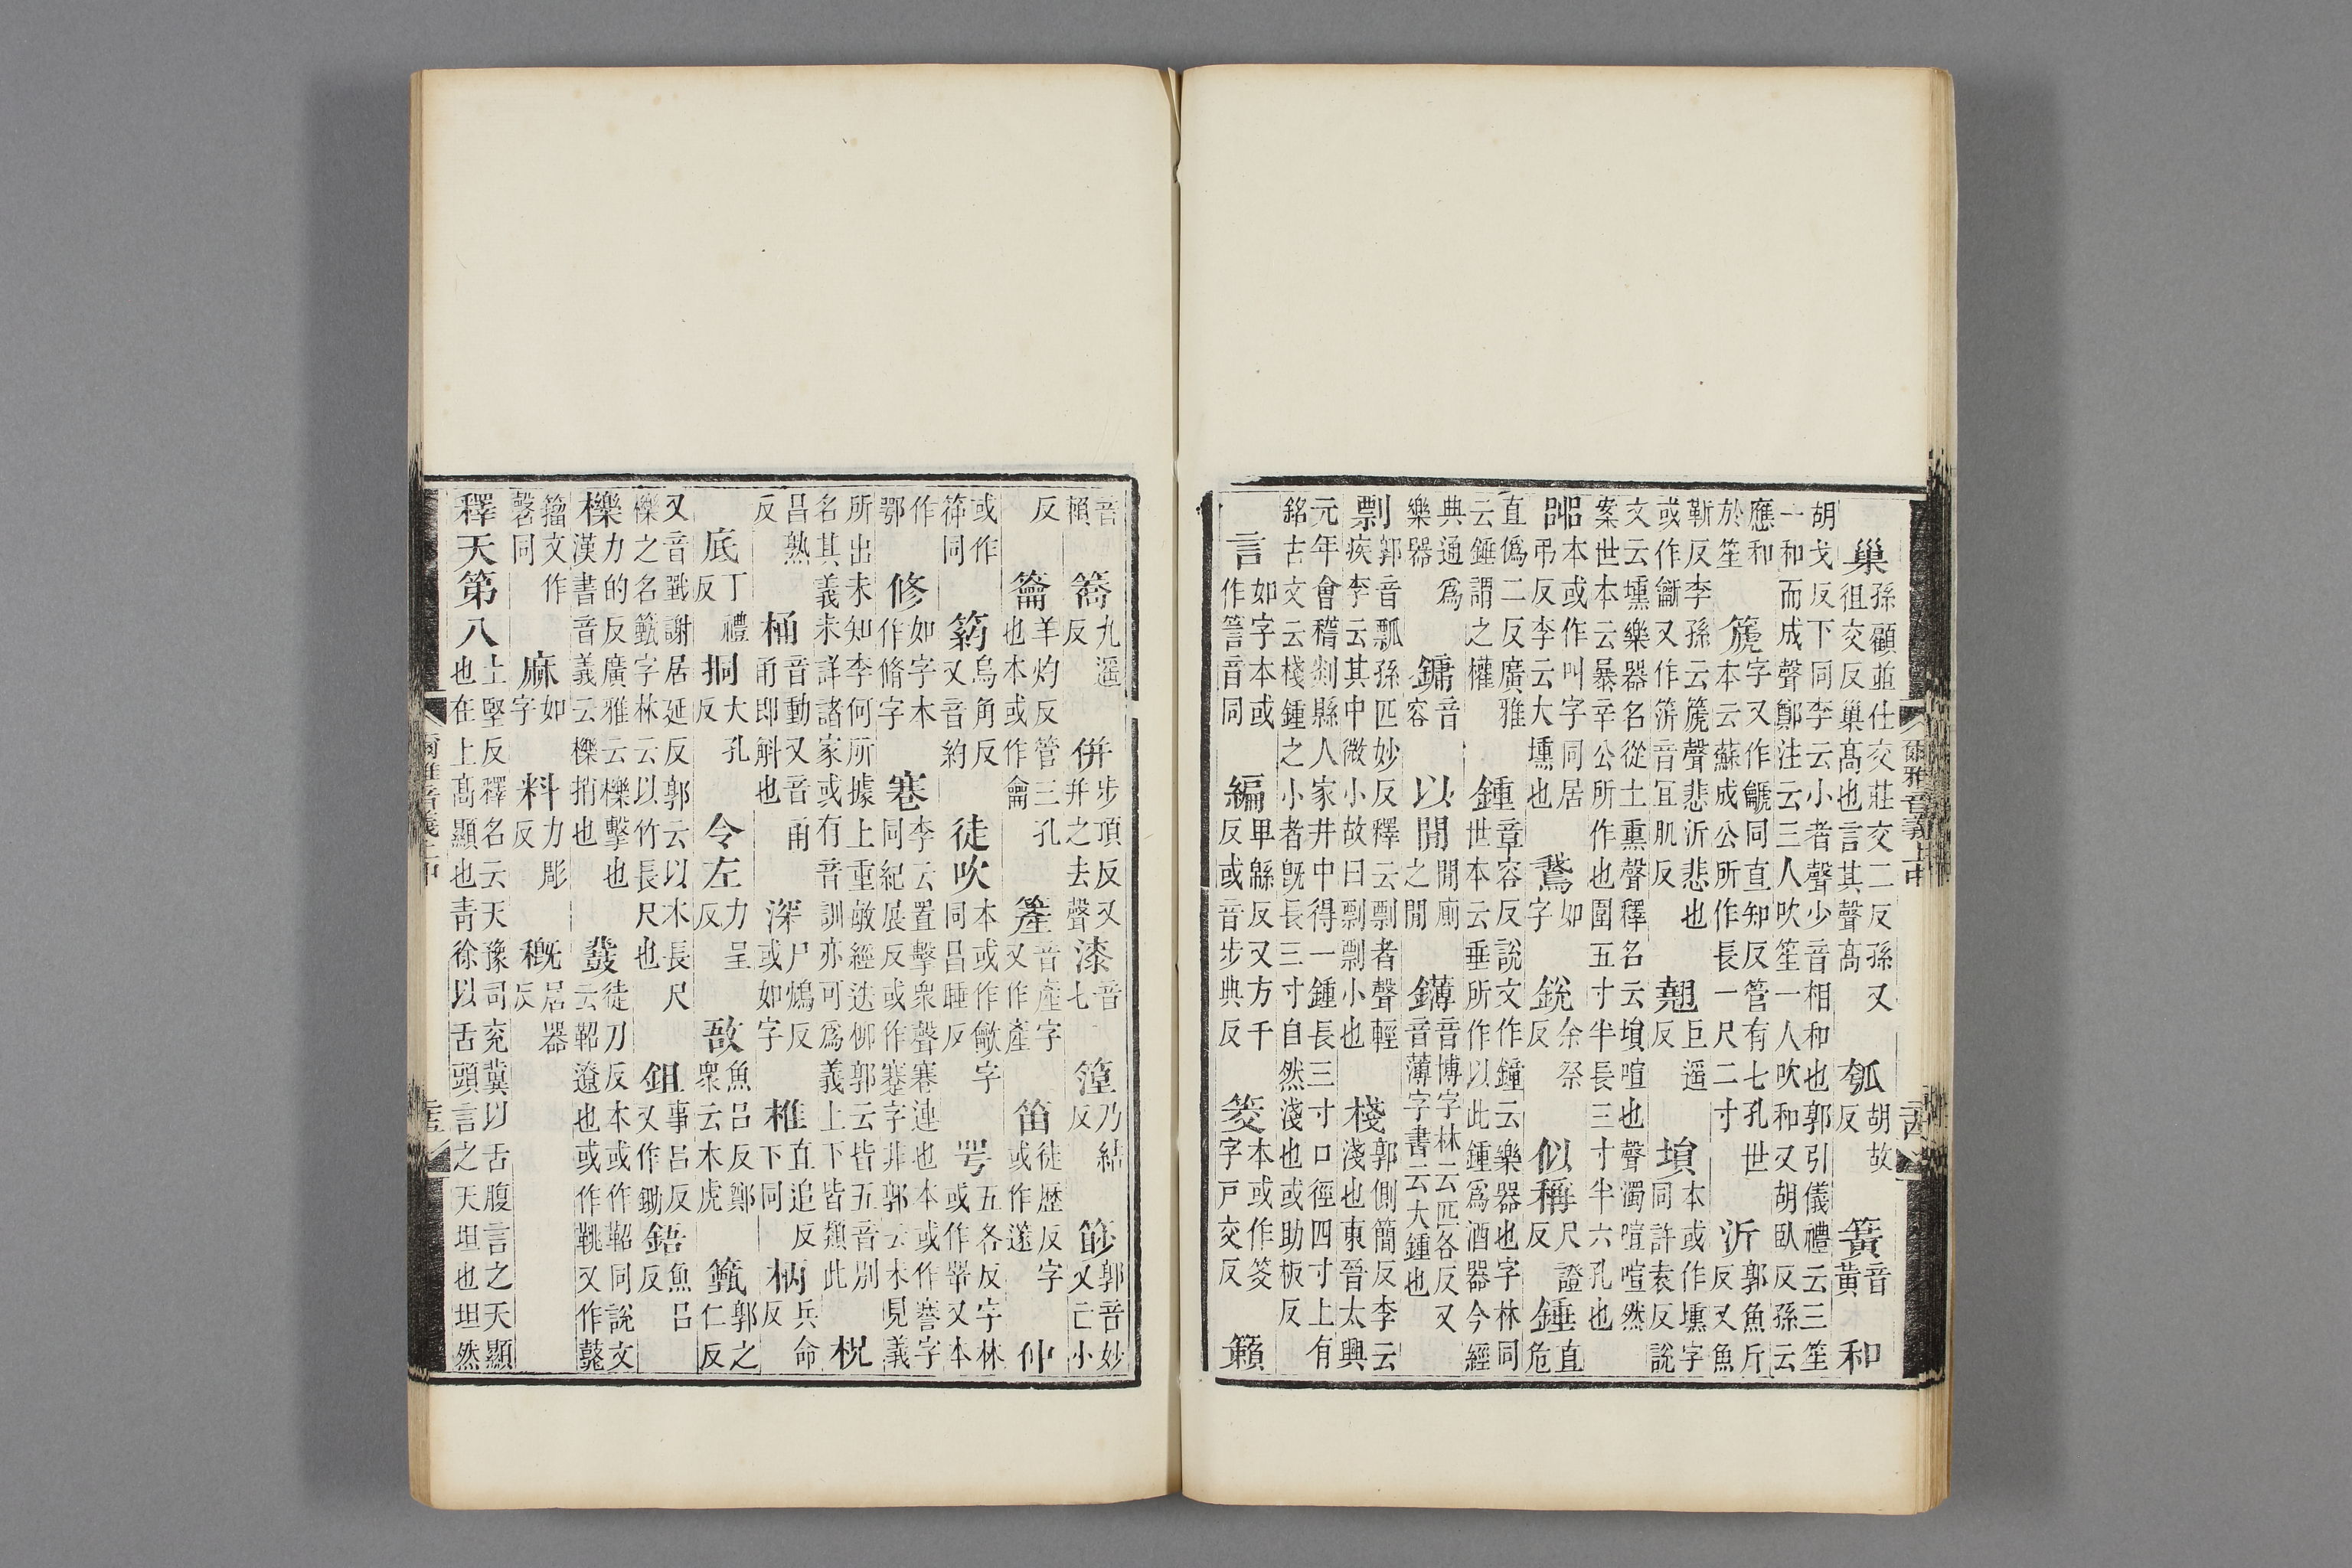 巢孫顧並仕交莊交二反孫又徂交反巢髙也言其聲髙瓠胡故反簧音黃和
胡戈反下同李云小者聲少音相和也郭引儀禮云三笙一和而成聲鄭注云三人吹笙一人吹和又胡臥反孫云
應和於笙篪字又作䶵同直知反管有七孔世本云蘇成公所作長一尺二寸沂郭魚斤反又魚
靳反李孫云篪聲悲沂悲也或作又作音宜肌反翹巨遥反塤本或作壎字同許袁反說
文云壎樂器名從土熏聲釋名云塤喧也聲濁喧喧然案世本云暴辛公所作也圍五寸半長三寸半六孔也
嘂本或作叫字同居弔反李云大壎也鵞如字銳余祭反似稱尺證反錘直危
直僞二反廣雅云錘謂之權鍾章容反說文作鐘云樂器也字林同世本云垂所作以此鍾爲酒器今經
典通爲樂器鏞音容以閒閒廁之閒鑮音博字林云匹各反又音薄字書云大鍾也
剽郭音瓢孫匹妙反釋云剽者聲輕疾李云其中微小故曰剽剽小也棧郭側簡反李云淺也東晉太興
元年會稽剡縣人家井中得一鍾長三寸口徑四寸上有銘古文云棧鍾之小者旣長三寸自然淺也或助板反
言如字本或作䇾音同編畢緜反又方千反或音步典反筊本或作茭字戸交反籟
爾雅音義上中
音賴簥九遥反併步頂反又并之去聲漆音七篞乃結反篎郭音妙又亡小
反籥羊灼反管三孔也本或作龠簅音產字又作產笛徒歷反字或作篴仲
或作筗同箹烏角反又音約徒吹本或作龡字同昌睡反咢五各反字林或作㖾又本
作鄂修如字本作脩字寋李云置擊衆聲蹇連也本或作謇字同紀展反或作蹇字非郭云未見義
所出未知李何所據上重敏經迭柳郭云皆五音別名其義未詳諸家或有音訓亦可爲義上下皆類此柷
昌熟反桶音動又音甬甬即斛也深尸鴆反或如字椎直追反下同柄兵命反
底丁禮反挏大孔反令左力呈反敔魚呂反鄭衆云木虎籈郭之仁反
又音戩謝居延反郭云以木長尺櫟之名籈字林云以竹長尺也鉏事呂反又作鋤鋙魚呂反
櫟力的反廣雅云櫟擊也漢書音義云櫟捎也鼗徒刀反本或作鞀同說文云鞀遼也或作鞉又作鼗
籀文作磬同麻如字料力彫反槪居器反
釋天第八土堅反釋名云天豫司兖冀以舌腹言之天顯也在上髙顯也靑徐以舌頭言之天坦也坦然